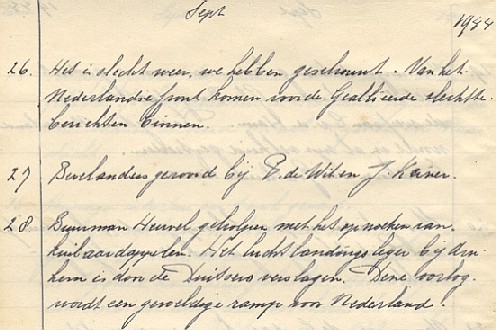 Sept
1944
26. Het is slecht weer, we hebben geschuurd. Van het
Nederlandse front komen voor de Geallieerde slechte
berichten binnen.
27 Bevelanders gerooid bij P. de Wit en J. Keiner.
28 Buurman Heuvel geholpen met het opzoeken van
kuilaardappelen. Het luchtlandingsleger bij Arn
hem is door de Duitsers verslagen. Deze oorlog
wordt een geweldige ramp voor Nederland!